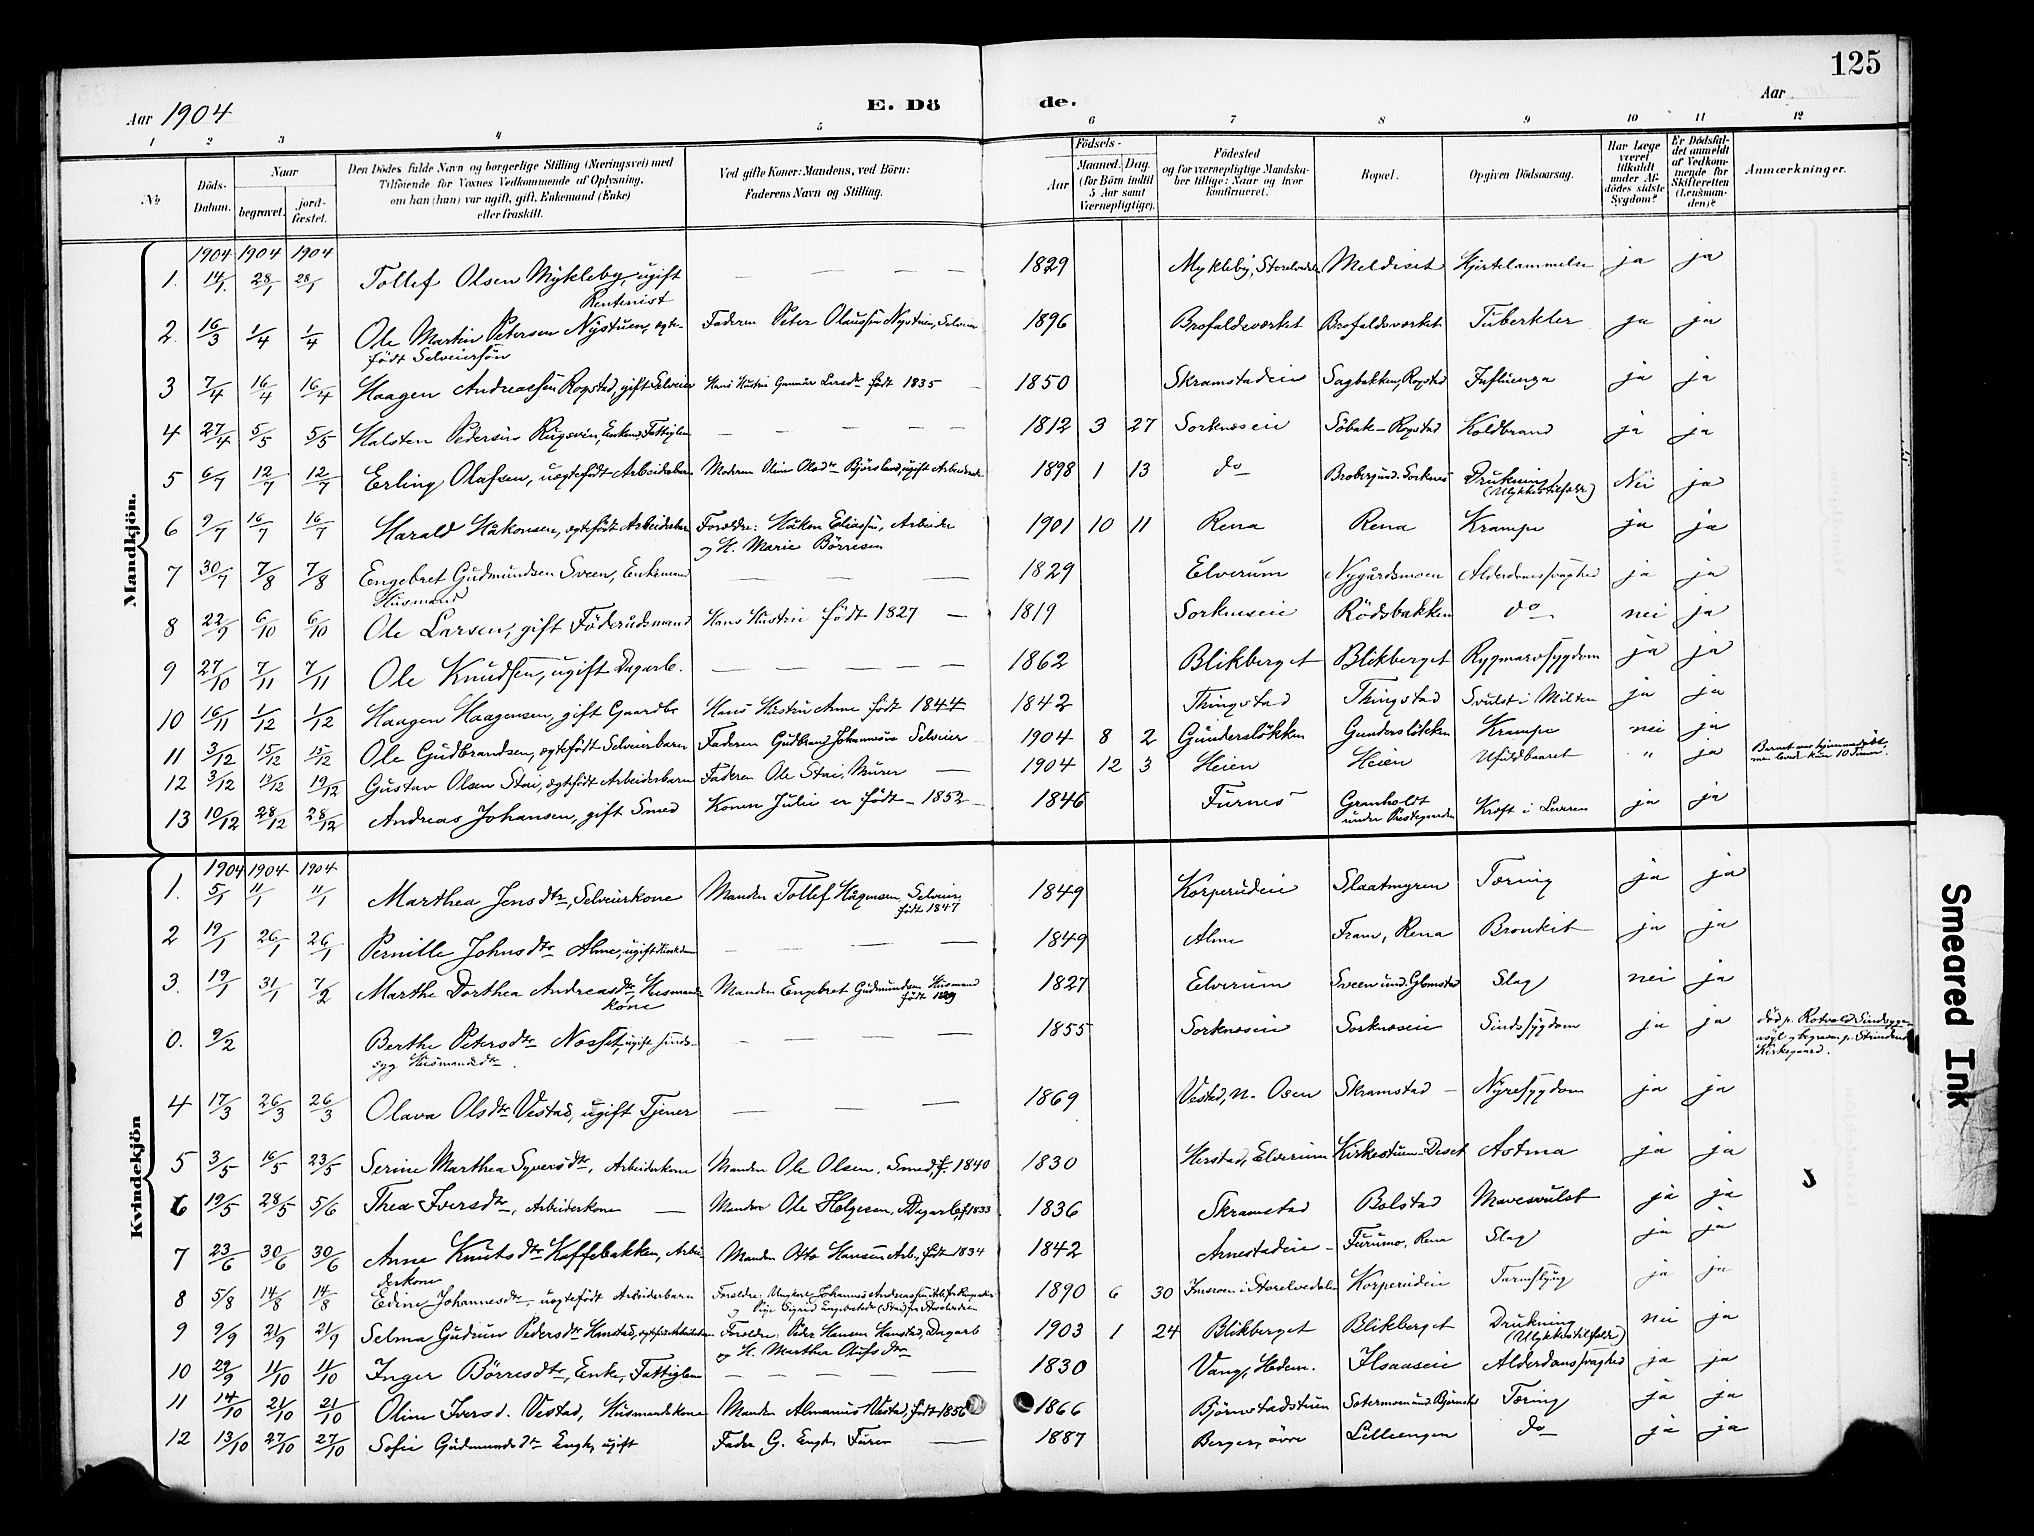 125
Aar 1904
E. Dö
de.
Aar
1 2 3 4 5 6 7 8 9 10 11 12
No
Döds-Datum.
Naar
begravet.
jord-fæstet.
Den Dödes fulde Navn og borgerlige Stilling (Næringsvei) med
Tilföiende for Voxnes Vedkommende af Oplysning,
om han (hun) var ugift, gift, Enkemand (Enke)
eller fraskilt.
Ved gifte Koner: Mandens, ved Börn:
Faderens Navn og Stilling.
Födsels-
Aar
Maaned.
Dag.
(for Börn indtil
5 Aar samt
Værnepligtige).
Födested
og for værnepligtige Mandska-
ber tillige: Naar og hvor
konfirmeret.
Bopæl.
Opgiven Dödsaarsag.
Har Læge
været
tilkaldt
under Af-
dödes sidste
Sygdom?
Er Dödsfal-
det anmeldt
af Vedkom-
mende for
Skifteretten
(Lensman-
den)?
Anmærkninger.
Mandkjön.
1904 1904 1904
1. 14/1 28/1 28/1 Tollef Olsen Mykleby, ugift — — — — 1829 Mykleby, Storelvedalen Meldiset Hjertelammelse ja ja
Rentenist
2. 16/3 1/4 1/4 Ole Martin Petersen Nystuen, ægte- Faderen Peter Olaussen Nystuen, Selveier 1896 Brofaldsværket Brofaldsværket Tuberkler ja ja
födt Selveiersön
3 7/4 16/4 16/4 Haagen Andreassen Rogstad, gift Selveier Hans Hustru Gunnür Larsdtr födt 1835 — 1850 Skramstadeie Sagbakken, Rogstad Influenza ja ja
4 27/4 5/5 5/5 Halsten Pedersen Enkem. Fattiglem — — — — — 1812 3 27 Sorknæseie Söbak-Rogstad Koldbrand ja ja
5 6/7 12/7 12/7 Erling Olafsen, uægtefödt Arbeidsbarn Moderen Oline Olsdtr ugift Arbeiderske 1898 1 13 do Broberg und. Sorknæs Drukning Nei ja
(Ulykkestilfælde)
6 9/7 16/7 16/7 Harald Håkonsen, ægtefödt Arbeiderbarn Forældre: Håken Eliassen, Arbeider 1901 10 11 Rena Rena Krampe ja ja
og H. Marie Börresen
7 30/7 7/8 7/8 Engebret Gudmundsen Sveen, Enkemand — — — — 1829 Elverum Nygårdsmoen Alderdomssvaghed ja ja
Husmand
8 22/9 6/10 6/10 Ole Larsen, gift Föderudsmand Hans Hustru födt 1827 — 1819 Sorknæseie Rödsbakken do nei ja
9 27/10 7/11 7/11 Ole Knudsen, ugift Dagarb. — — — — — 1862 Blikberget Blikberget Rygmarvsygdom ja ja
10 16/11 1/12 1/12 Haagen Haagensen, gift Gaardbr Hans Hustru Anne födt 1844 1842 Thingstad Thingstad Svulst i Milten ja ja
11 3/12 15/12 15/12 Ole Gudbrandsen, ægtefödt Selveierbarn Faderen Gudbrand Johannesen Selveier 1904 8 2 Gunderslökken Gunderslökken Krampe nei ja
12 3/12 19/12 19/12 Gustav Olsen Stai, ægtefödt Arbeiderbarn Faderen Ole Stai, Murer — 1904 12 3 Heien Heien Ufuldbaaret " ja Barnet var hjemmedöbt,
men levede kun 10 Timer.
13 10/12 28/12 28/12 Andreas Johansen, gift Smed Konen Julie er födt - 1852 — 1846 Furnes Granholdt Kræft i Leveren ja ja
under Prestegaarden
Kvindekjön
1904 1904 1904
1. 5/1 11/1 11/1 Marthea Jensdtr, Selveierkone Manden Tollef Hågensen, Selveier 1849 Korperudeie Slaatmyren Tæring ja ja
födt 1847
2 19/1 26/1 26/1 Pernille Johnsdtr Alme, ugift — — — 1849 Alme Fram, Rena Bronkit ja ja
3. 19/1 31/1 7/2 Marthe Dorthea Andreasdtr, Husmands- Manden Engebret Gudmundsen Husmand 1827 Elverum Sveen und. Glomstad Slag nei ja
kone födt 1829
0. 9/2 Berthe Petersdtr Nosset, ugift sinds- — — — — 1855 Sorknæseie Sorknæseie Sindssygdom ja ja död p. Rotvold Sindssyge-
syg Husmandsdtr. asyl, begraven p. Strindens
Kirkegaard.
4 17/3 26/3 26/3 Olava Olsdtr Vestad, ugift Tjener — — — 1869 Vestad, n. Osen Skramstad — Nyresygdom ja ja
5 3/5 16/5 23/5 Serine Marthea Syversdtr, Arbeiderkone Manden Ole Olsen, Smed, f. 1840 1830 Herstad, Elverum Kirkestuen-Deset Astma ja ja
6 19/5 28/5 5/6 Thea Iversdtr, Arbeiderkone — Manden Ole Helgesen, Dagarb, f 1833 1836 Skramstad Bolstad Mavesvulst ja ja
7 23/6 30/6 30/6 Anne Knutsdtr Kaffebakken, Arbei- Manden Otto Hansen Arb., födt 1834 1842 Arnestadeie — Furumo, Rena Slag ja ja
derkone
8 5/8 14/8 14/8 Edine Johannesdtr, uægtefödt Arbeiderbarn Forældre: Ungkarl Johannes Andreassen 1890 6 30 Imsroen i Storelvedalen Korperudeie Tarmslyng ja ja
og Pige Sigrid Engebretsdtr
9 9/9 21/9 21/9 Selma Gudrun Pedersdtr Hanstad, ægtefödt Arbeiderbarn Forældre: Peder Hansen Hanstad, Dagarb 1903 1 24 Blikberget Blikberget Drukning nei ja
og H. Marthea Olufsdtr (Ulykkestilfælde)
10 29/9 11/10 11/10 Inger Börresdtr, Enke, Fattiglem — — — — — 1830 Vang, Hedem. Ilsaaseie Alderdomssvaghed ja ja
11 14/10 21/10 21/10 Oline Iversd. Vestad, Husmandskone Manden Almanus Vestad, födt 1856 1866 Björnstadstuen Sætermoen und. Björnstad Tæring ja ja
12 13/10 27/10 27/10 Sofie Gudmundsdtr Engh, ugift Fader G. Engh, Furer — 1887 Berger, övre Lilleengen do ja ja
Smeared Ink